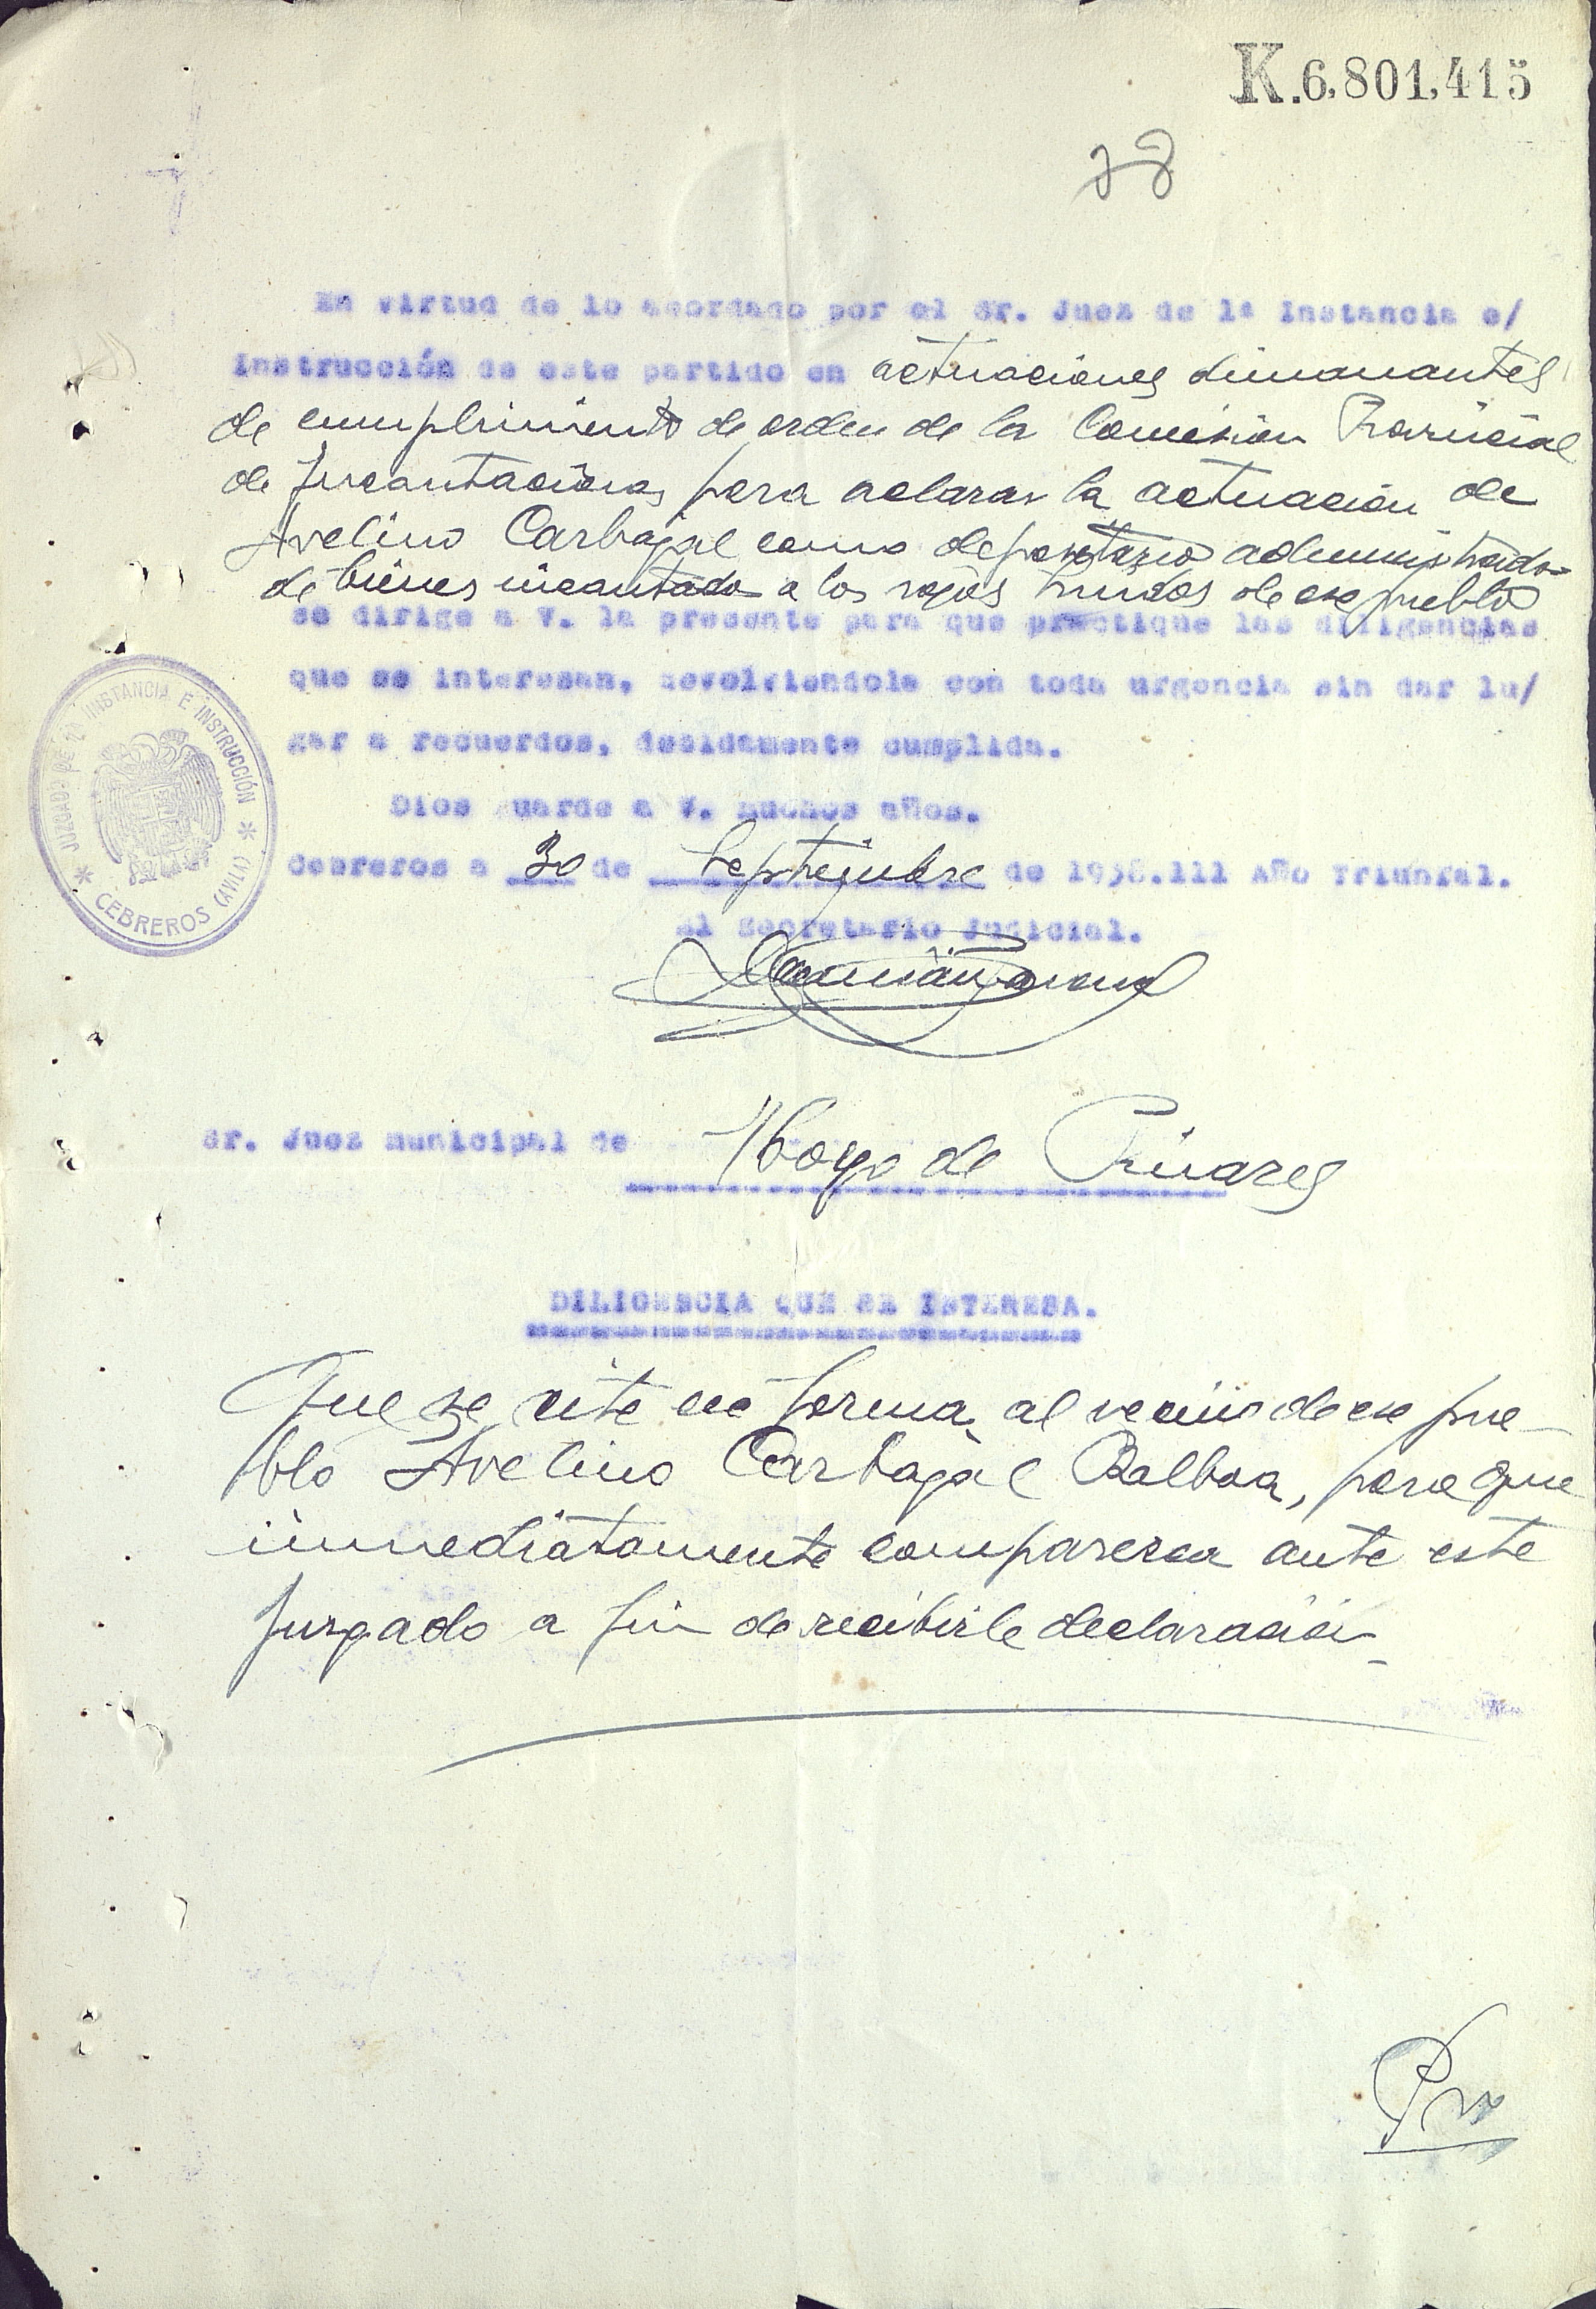 K.6,801,415
28
En virtud de lo acordado por el Sr. Juez de 1ª Instancia e/
Instrucción de este partido en actuaciones dimanantes
de cumplimiento de orden de la Comisión Provincial
de Incautaciones para aclarar la actuación de
Avelino Carbajal como depositario administrador
de bienes incautados a los rojos huidos de ese pueblo
se dirige a V. la presente para que practique las diligencias
que se interesan, devolviendola con toda urgencia sin dar lu/
gar a recuerdos, debidamente cumplida.
Dios guarde a V. muchos años.
Cebreros a 30 de Septiembre de 1938.III Año Triunfal.
El Secretario Judicial.
JUZGADO DE 1ª INSTANCIA E INSTRUCCIÓN * CEBREROS (AVILA) *
Sr. Juez Municipal de Hoyo de Pinares
DILIGENCIA QUE SE INTERESA.
Que se cite en forma al vecino de ese pue-
blo Avelino Carbajal Balboa, para que
inmediatamente comparezca ante este
Juzgado a fin de recibirle declaración